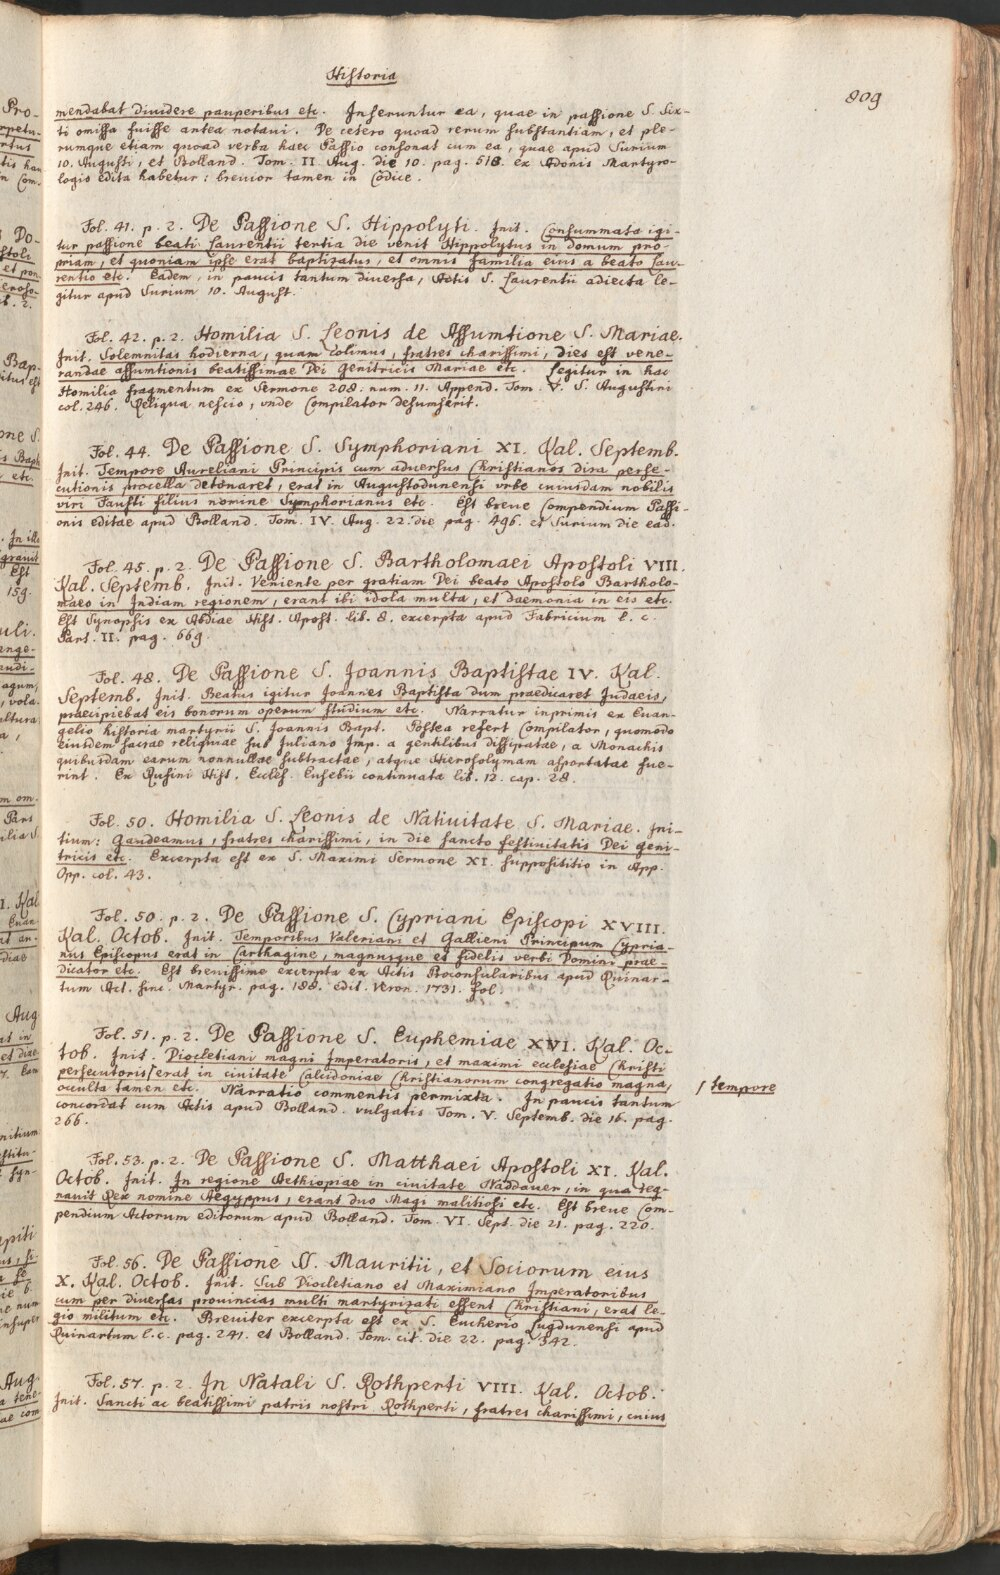 Historia
809
mendabat diuidere pauperibus etc. Inseruntur ea, quae in passione S. Six-
ti omissa fuisse antea notaui. De cetero quoad rerum substantiam, et ple-
rumque etiam quoad verba haec Passio consonat cum ea, quae apud Surium
10. Augusti, et Bolland. Tom. II Aug. die 10. pag. 518. ex Adonis Martyro-
logis edita habetur: breuior tamen in Codice.
Fol. 41. p. 2. De Passione S. Hippolyti. Init. Consummata igi-
tur passione beati Laurentii tertia die venit Hippolytus in domum pro-
priam, et quoniam ipse erat baptizatus, et omnis familia eius a beato Lau-
rentio etc. Eadem, in paucis tantum diuersa, Actis S. Laurentii adiecta le-
gitur apud Surium 10. August.
Fol. 42. p. 2. Homilia S. Leonis de Assumtione S. Mariae.
Init. Solemnitas hodierna, quam colimus, fratres charissimi, dies est vene-
randae assumtionis beatissimae Dei Genitricis Mariae etc. Legitur in hac
Homilia fragmentum ex Sermone 208. num. 11. Append. Tom. V. S. Augustini
col. 246. Reliqua nescio, vnde Compilator desumserit.
Fol. 44. De Passione S. Symphoriani XI. Kal. Septemb.
Init. Tempore Aureliani Principis cum aduersus Christianos dira perse-
cutionis procella detonaret, erat in Augustodunensi vrbe cuiusdam nobilis
viri Fausti filius nomine Symphorianus etc. Est breue Compendium Passi-
onis editae apud Bolland. Tom. IV. Aug. 22. die pag. 496. et Surium die ead.
Fol. 45. p. 2. De Passione S. Bartholomaei Apostoli VIII.
Kal. Septemb. Init. Veniente per gratiam Dei beato Apostolo Bartholo-
maeo in Indiam regionem, erant ibi idola multa, et daemonia in eis etc.
Est Synopsis ex Abdiae Hist. Apost. lib. 8. excerpta apud Fabricium l. c.
Part. II. pag. 669.
Fol. 48. De Passione S. Joannis Baptistae IV. Kal.
Septemb. Init. Beatus igitur Joannes Baptista dum praedicaret Judaeis,
praecipiebat eis bonorum operum studium etc. Narratur inprimis ex Euan-
gelio historia martyrii S. Joannis Bapt. Postea refert Compilator, quomodo
eiusdem sacrae reliquiae sub Juliano Imp. a gentilibus dissipatae, a Monachis
quibusdam earum nonnullae subtractae, atque Hierosolymam asportatae fue-
rint. Ex Rufini Hist. Eccles. Eusebii continuata lib. 12. cap. 28.
Fol. 50. Homilia S. Leonis de Natiuitate S. Mariae. Ini-
tium: Gaudeamus, fratres charissimi, in die sancto festiuitatis Dei geni-
tricis etc. Excerpta est ex S. Maximi Sermone XI. supposititio in App.
Opp. col. 43.
Fol. 50. p. 2. De Passione S. Cypriani Episcopi XVIII.
Kal. Octob. Init. Temporibus Valeriani et Gallieni Principum Cypria-
nus Episcopus erat in Carthagine, magnusque et fidelis verbi Domini prae-
dicator etc. Est breuissime excerpta ex Actis Proconsularibus apud Ruinar-
tum Act. sinc. Martyr. pag. 188. edit. Veron. 1731. fol.
Fol. 51. p. 2. De Passione S. Euphemiae XVI. Kal. Oc-
tob. Init. Diocletiani magni Imperatoris, et maximi ecclesiae Christi
persecutoris/ erat in ciuitate Calcidoniae Christianorum congregatio magna,
/ tempore
occulta tamen etc. Narratio commentis permixta. In paucis tantum
concordat cum Actis apud Bolland. vulgatis Tom. V. Septemb. die 16. pag.
266.
Fol. 53. p. 2. De Passione S. Matthaei Apostoli XI. Kal.
Octob. Init. In regione Aethiopiae in ciuitate Naddauer, in qua reg-
nauit Rex nomine Aegyppus, erant duo Magi malitiosi etc. Est breue Com-
pendium Actorum editorum apud Bolland. Tom. VI. Sept. die 21. pag. 220.
Fol. 56. De Passione SS. Mauritii, et Sociorum eius
X. Kal. Octob. Init. Sub Diocletiano et Maximiano Imperatoribus
cum per diuersas prouincias multi martyrizati essent Christiani, erat le-
gio militum etc. Breuiter excerpta est ex S. Eucherio Lugdunensi apud
Ruinartum l. c. pag. 241. et Bolland. Tom. cit. die 22. pag. 342.
Fol. 57. p. 2. In Natali S. Rothperti VIII. Kal. Octob.
Init. Sancti ac beatissimi patris nostri Rothperti, fratres charissimi, cuius